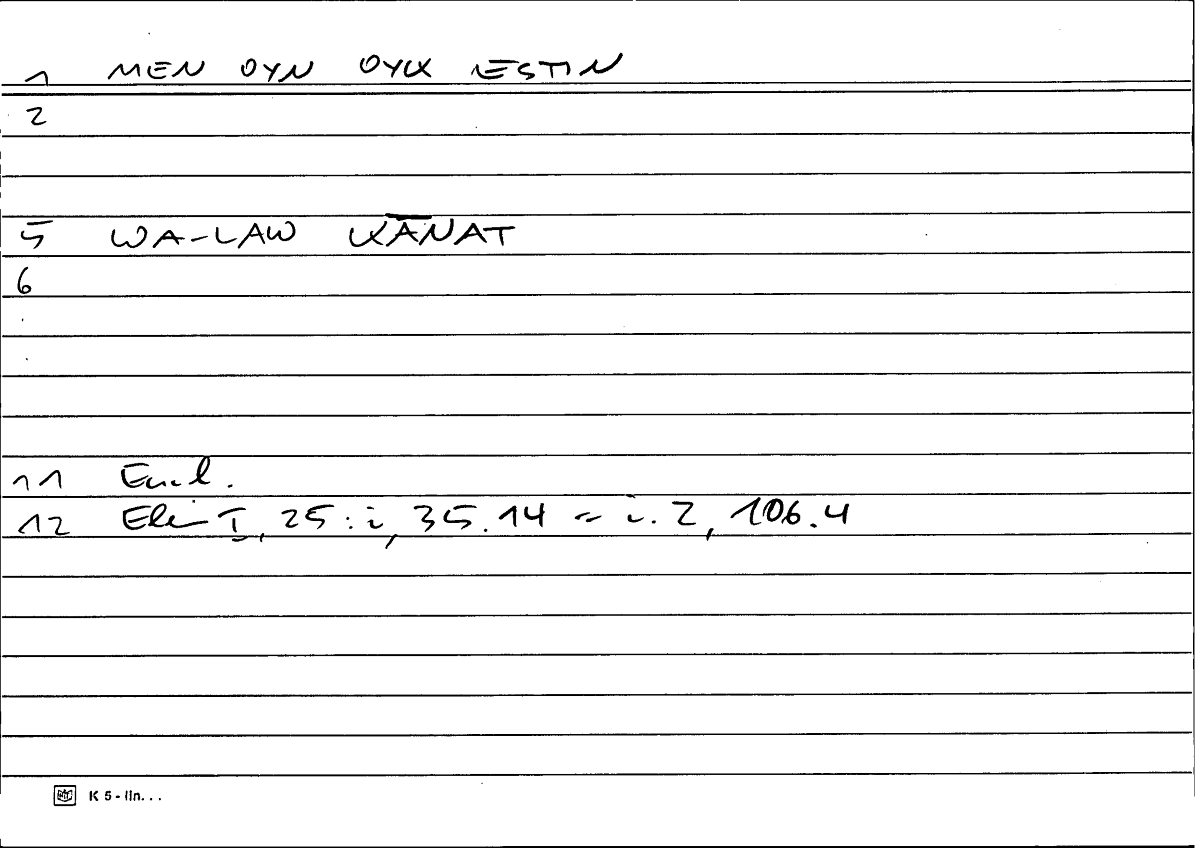 1 MEN OYN OYK ESTIN
2
5 WA-LAW KĀNAT
6
11 Eucl.
12 Elem I, 25: i, 35.14 = i. 2, 106.4
K 5 - lin...